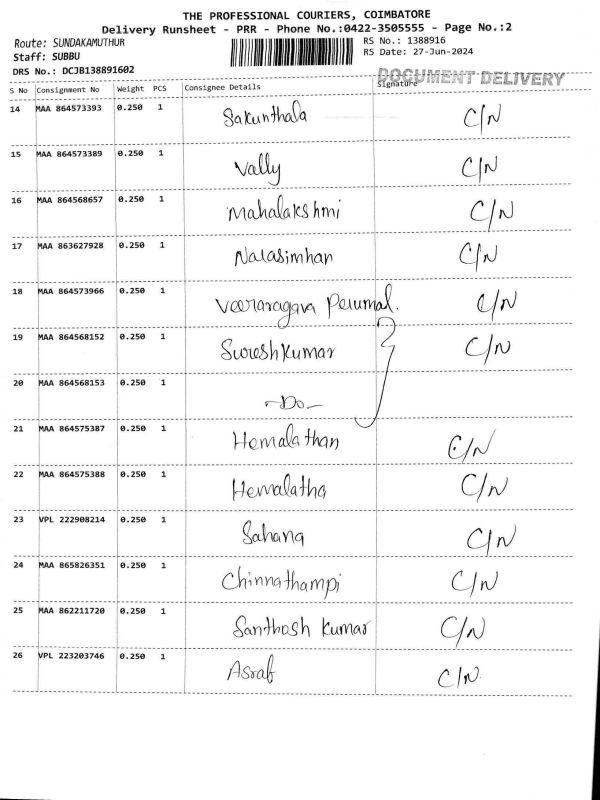 THE PROFESSIONAL COURIERS, COIMBATORE
Delivery Runsheet - PRR - Phone No.:0422-3505555 - Page No.:2
Route: SUNDAKAMUTHUR RS No.: 1388916
Staff: SUBBU RS Date: 27-Jun-2024
DRS No.: DCJB138891602 DOCUMENT DELIVERY
S No Consignment No Weight PCS Consignee Details Signature
14 MAA 864573393 0.250 1 Sakunthala C/N
15 MAA 864573389 0.250 1 Vally C/N
16 MAA 864568657 0.250 1 Mahalakshmi C/N
17 MAA 863627928 0.250 1 Narasimhan C/N
18 MAA 864573966 0.250 1 Veeraragava Perumal. C/N
19 MAA 864568152 0.250 1 Sureshkumar C/N
20 MAA 864568153 0.250 1 -Do-
21 MAA 864575387 0.250 1 Hemalathan C/N
22 MAA 864575388 0.250 1 Hemalatha C/N
23 VPL 222908214 0.250 1 Sahana C/N
24 MAA 865826351 0.250 1 Chinnathampi C/N
25 MAA 862211720 0.250 1 Santhosh Kumar C/N
26 VPL 223203746 0.250 1 Asraf C/N